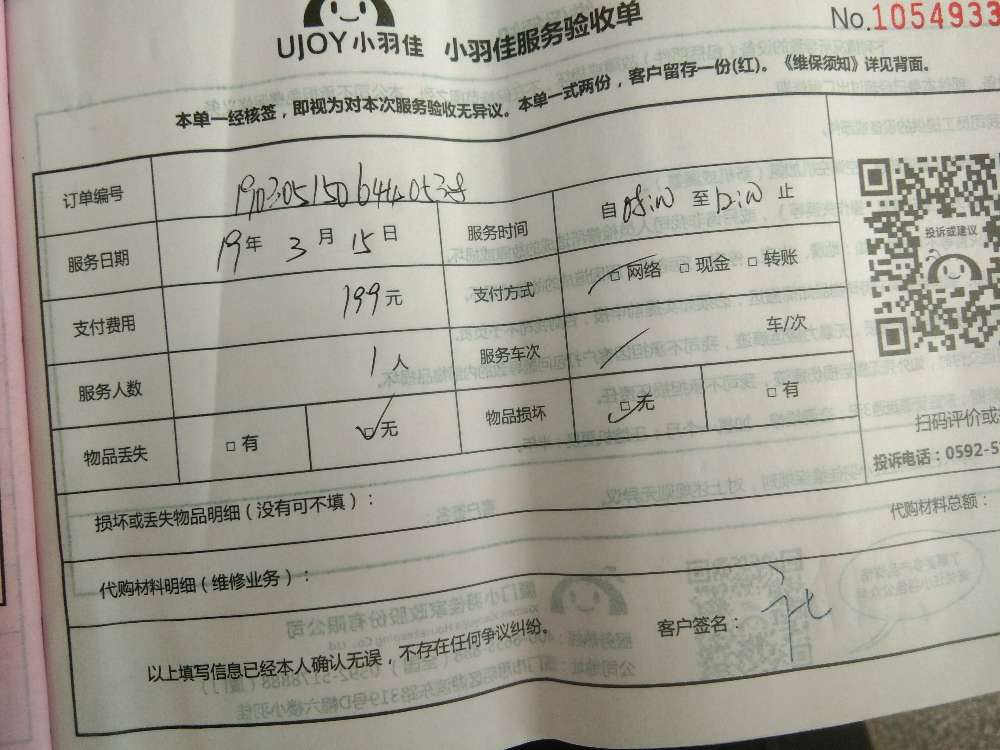 UJOY小羽佳 小羽佳服务验收单
No.1054933
本单一经核签，即视为对本次服务验收无异议。本单一式两份，客户留存一份(红)。《维保须知》详见背面。
订单编号
服务日期 19年 3月 15日 服务时间 自 至 止
支付费用 199元 支付方式 □网络 □现金 □转账
服务人数 1人 服务车次 车/次
物品丢失 □有 □无 物品损坏 □无 □有
投诉或建议
扫码评价或
投诉电话：0592-5
损坏或丢失物品明细（没有可不填）：
代购材料总额：
代购材料明细（维修业务）：
以上填写信息已经本人确认无误，不存在任何争议纠纷。 客户签名：